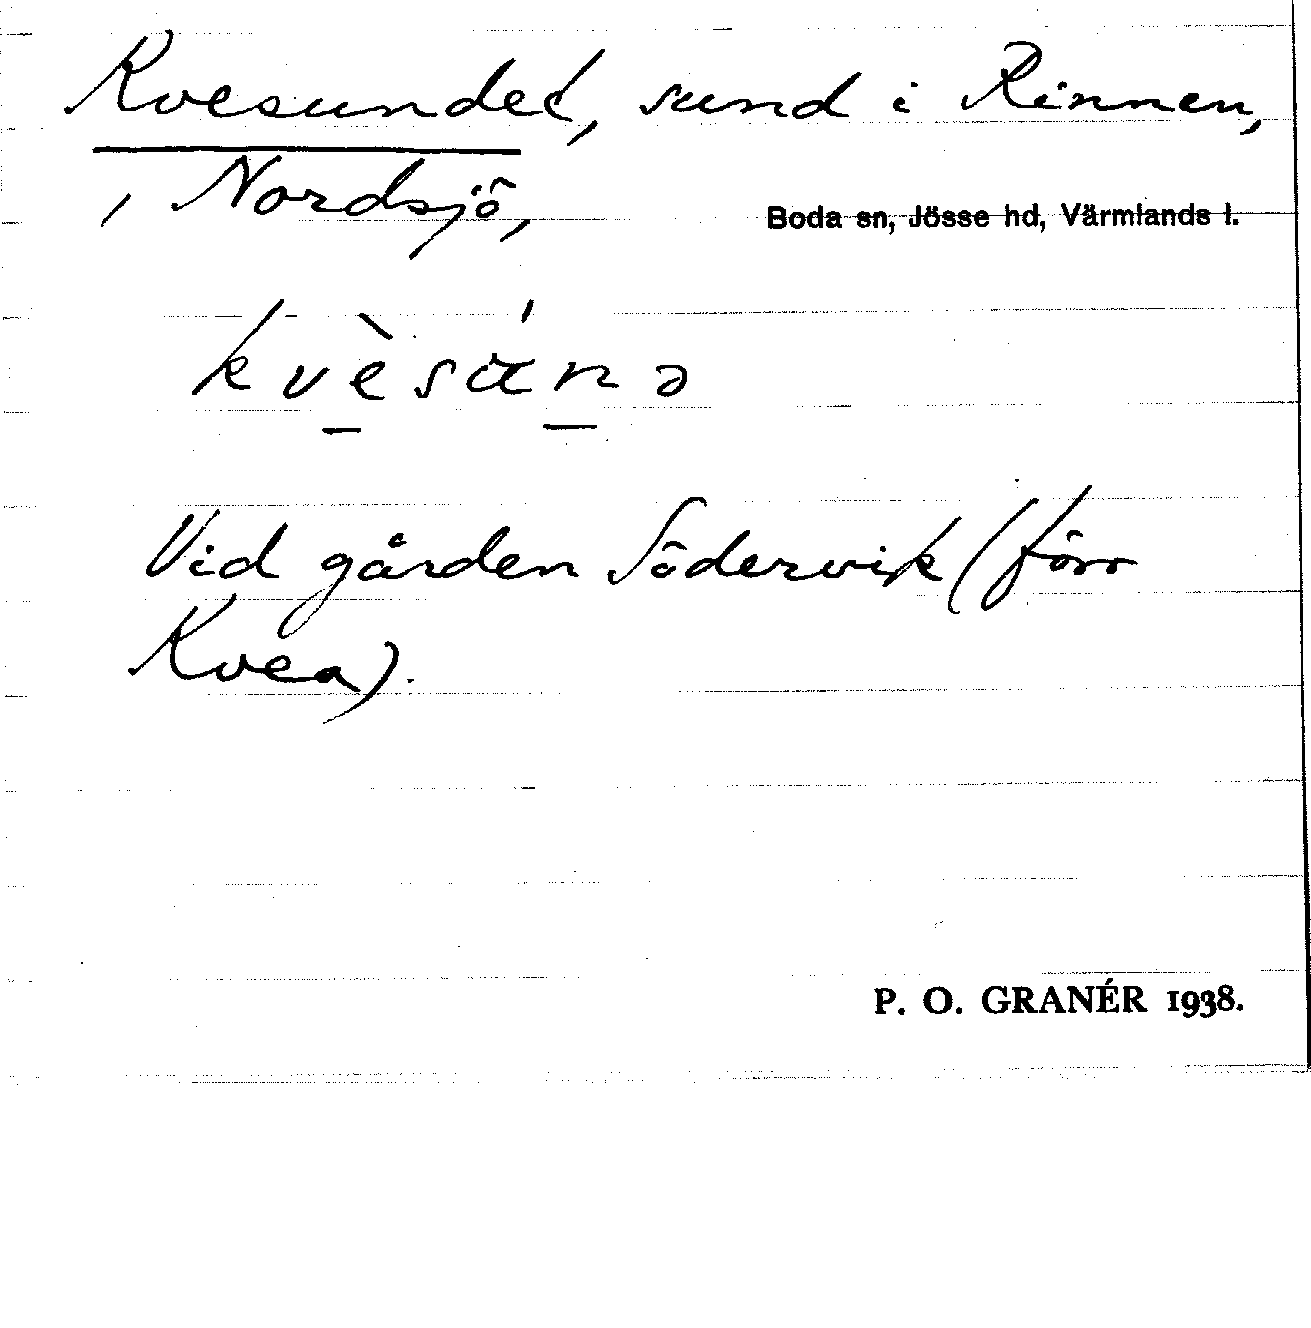 Kvesundet, sund i Rinnen,
, Nordsjö,
Boda sn, Jösse hd, Värmlands l.
kvèsɑ́nə
Vid gården Södervik (förr
Kvea).
P. O. GRANÉR 1938.